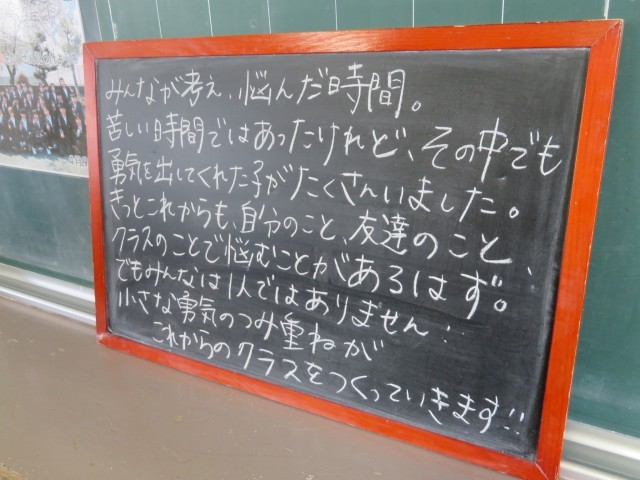 みんなが考え、悩んだ時間。
苦しい時間ではあったけれど、その中でも
勇気を出してくれた子がたくさんいました。
きっとこれからも、自分のこと、友達のこと、
クラスのことで悩むことがあるはず。
でもみんなは1人ではありません!!
小さな勇気のつみ重ねが
これからのクラスをつくっていきます!!